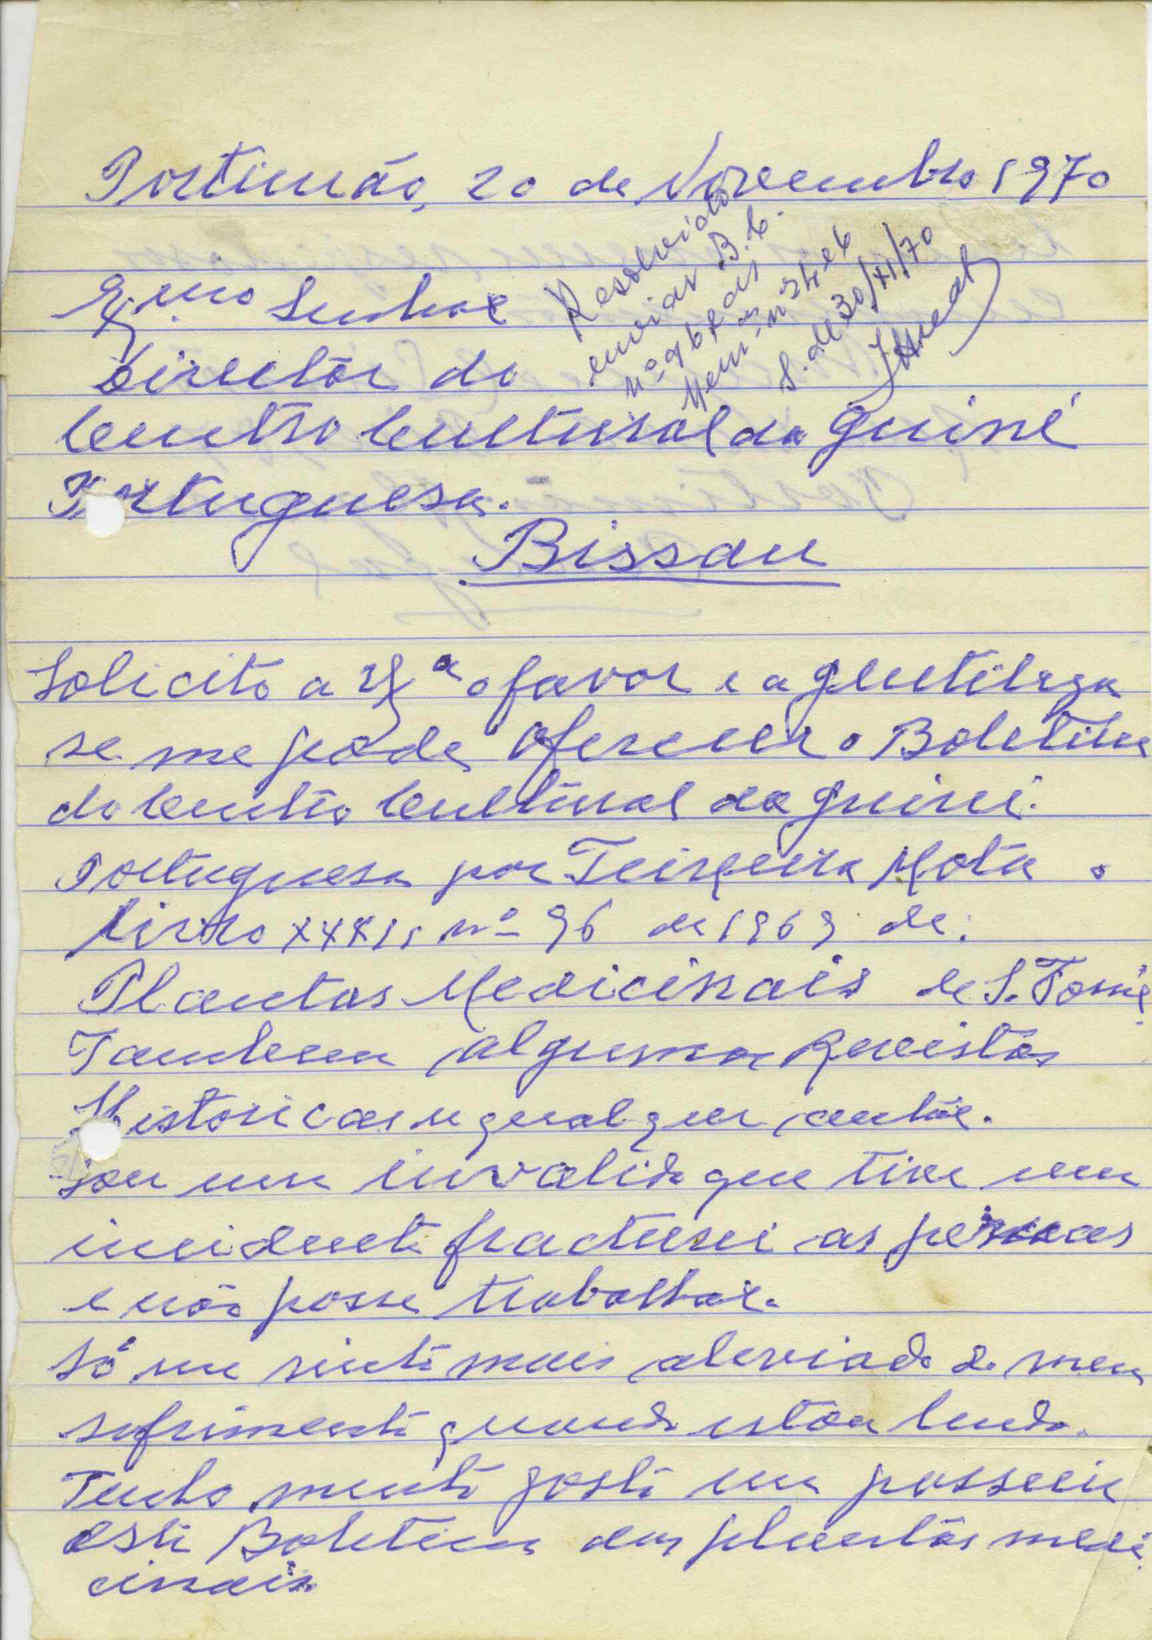 Portimão, 20 de Novembro 1970
Exmo Senhor
Director do
Centro Cultural da Guiné
Portuguesa.
Bissau
Resolvido
enviar B.C.
nº 96 e as
Mem. nºs
S. de 30/11/70
Solicito a Exª o favor e a gentileza
se me pode oferecer o Boletim
do Centro Cultural da Guiné
Portuguesa por Teixeira Mota o
livro XXXII nº 96 de 1969 de:
Plantas Medicinais de S. Tomé
Tambem algumas Revistas
Historicas u qualquer autôr.
sou um invalido que tive um
incidente fracturei as pernas
e não posso trabalhar.
Só me sinto mais aleviado do meu
sofrimento quando estou lendo.
Tenho muito gosto em possuir
este Boletim das plantas medi
cinais